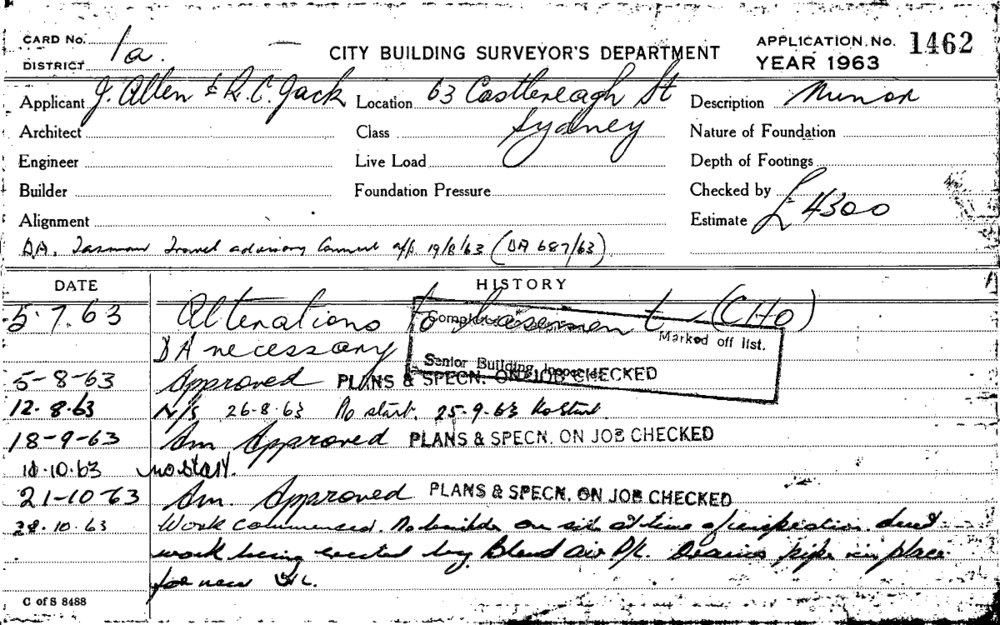 CARD No. 1a.
DISTRICT
CITY BUILDING SURVEYOR'S DEPARTMENT
APPLICATION. No. 1462
YEAR 1963
Applicant J. Allen & R. C. Jack
Location 63 Castlereagh St
Sydney
Description Minor
Architect
Class
Nature of Foundation
Engineer
Live Load
Depth of Footings
Builder
Foundation Pressure
Checked by
Alignment
Estimate £4300
DA. Travel advisory 19/8/63 (DA 687/63)
DATE
HISTORY
5.7.63 Alterations to basement (CHo)
DA necessary
Marked off list.
Senior Building
5-8-63 Approved PLANS & SPECN. ON JOB CHECKED
12.8.63 N/S 26-8-63 No start. 25-9-63 No start.
18-9-63 Am Approved PLANS & SPECN. ON JOB CHECKED
10.63 no start.
21-10-63 Am. Approved PLANS & SPECN. ON JOB CHECKED
28.10.63 Work commenced. No builder on site at time of inspection. duct
work being erected by air P/L. pipe in place
for new
C of S 8488